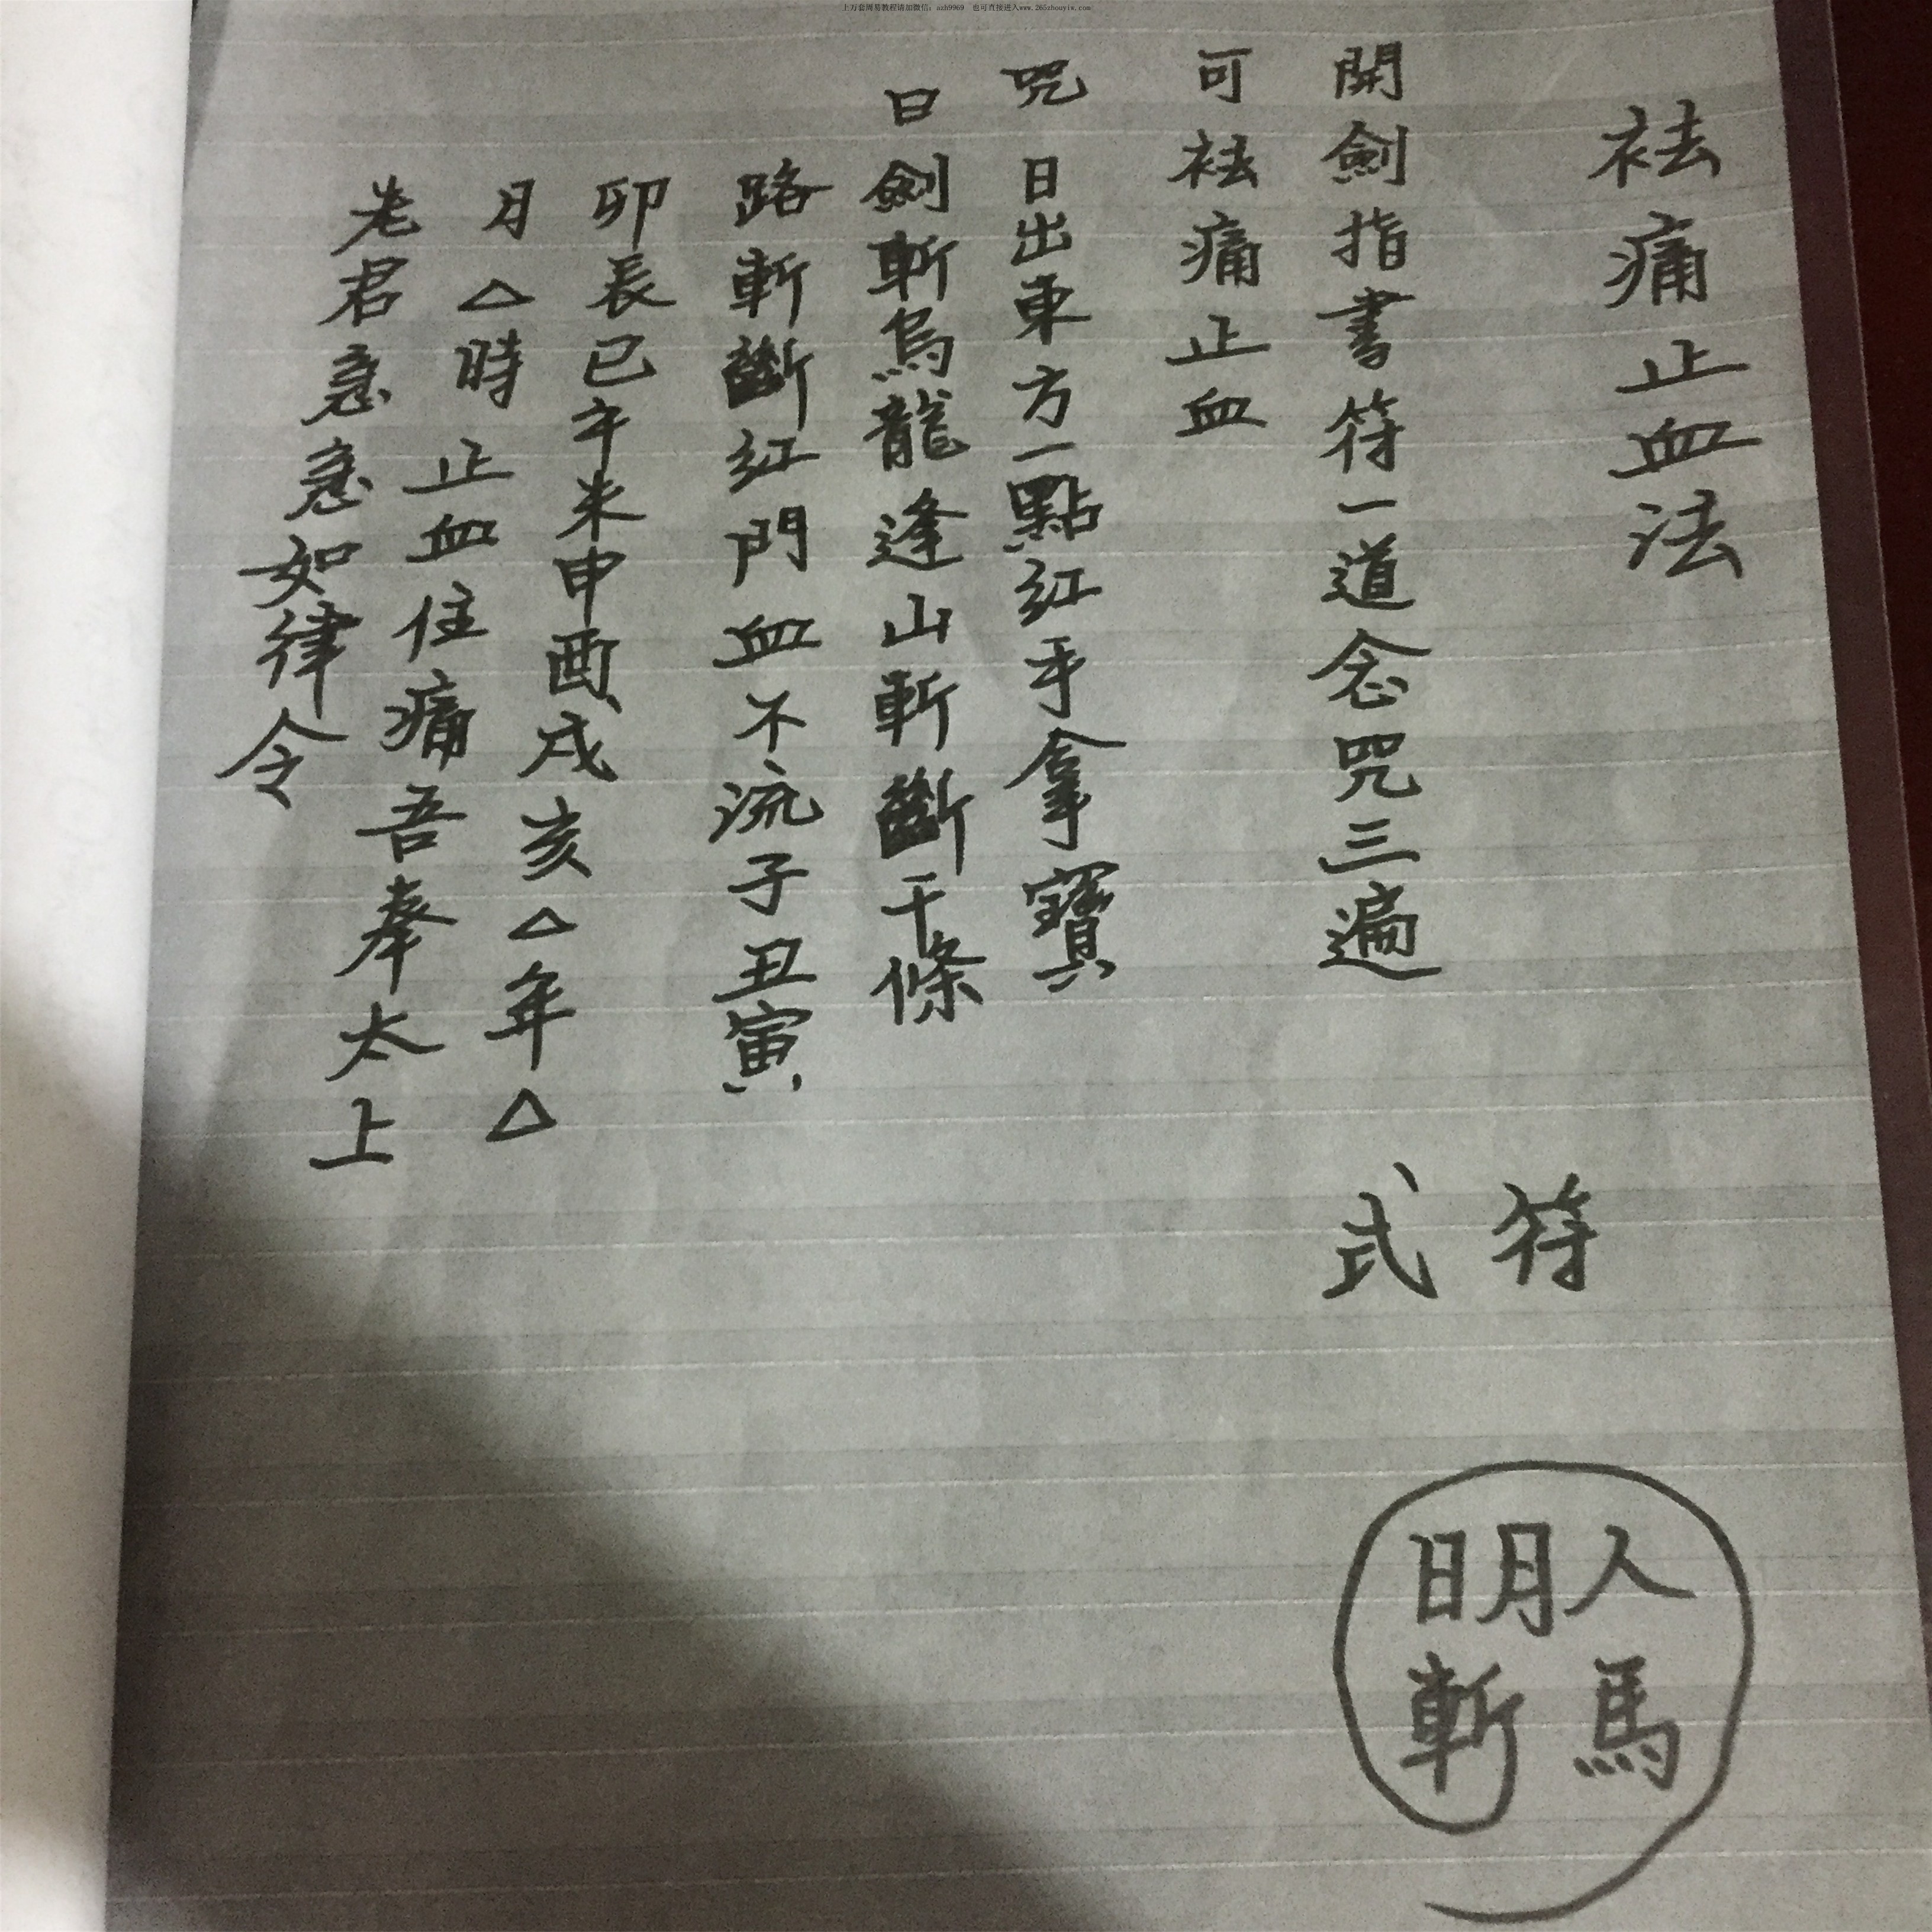 上万套周易教程请加微信：azh9969 也可直接进入www.265zhouyiw.com
袪痛止血法
開劍指書符一道念咒三遍
可袪痛止血
咒日出東方一點紅手拿寶
曰劍斬烏龍逢山斬斷千條
路斬斷紅門血不流子丑寅
卯辰巳午未申酉戌亥△年△
月△時止血住痛吾奉太上
老君急急如律令
符式
人明日
馬斬